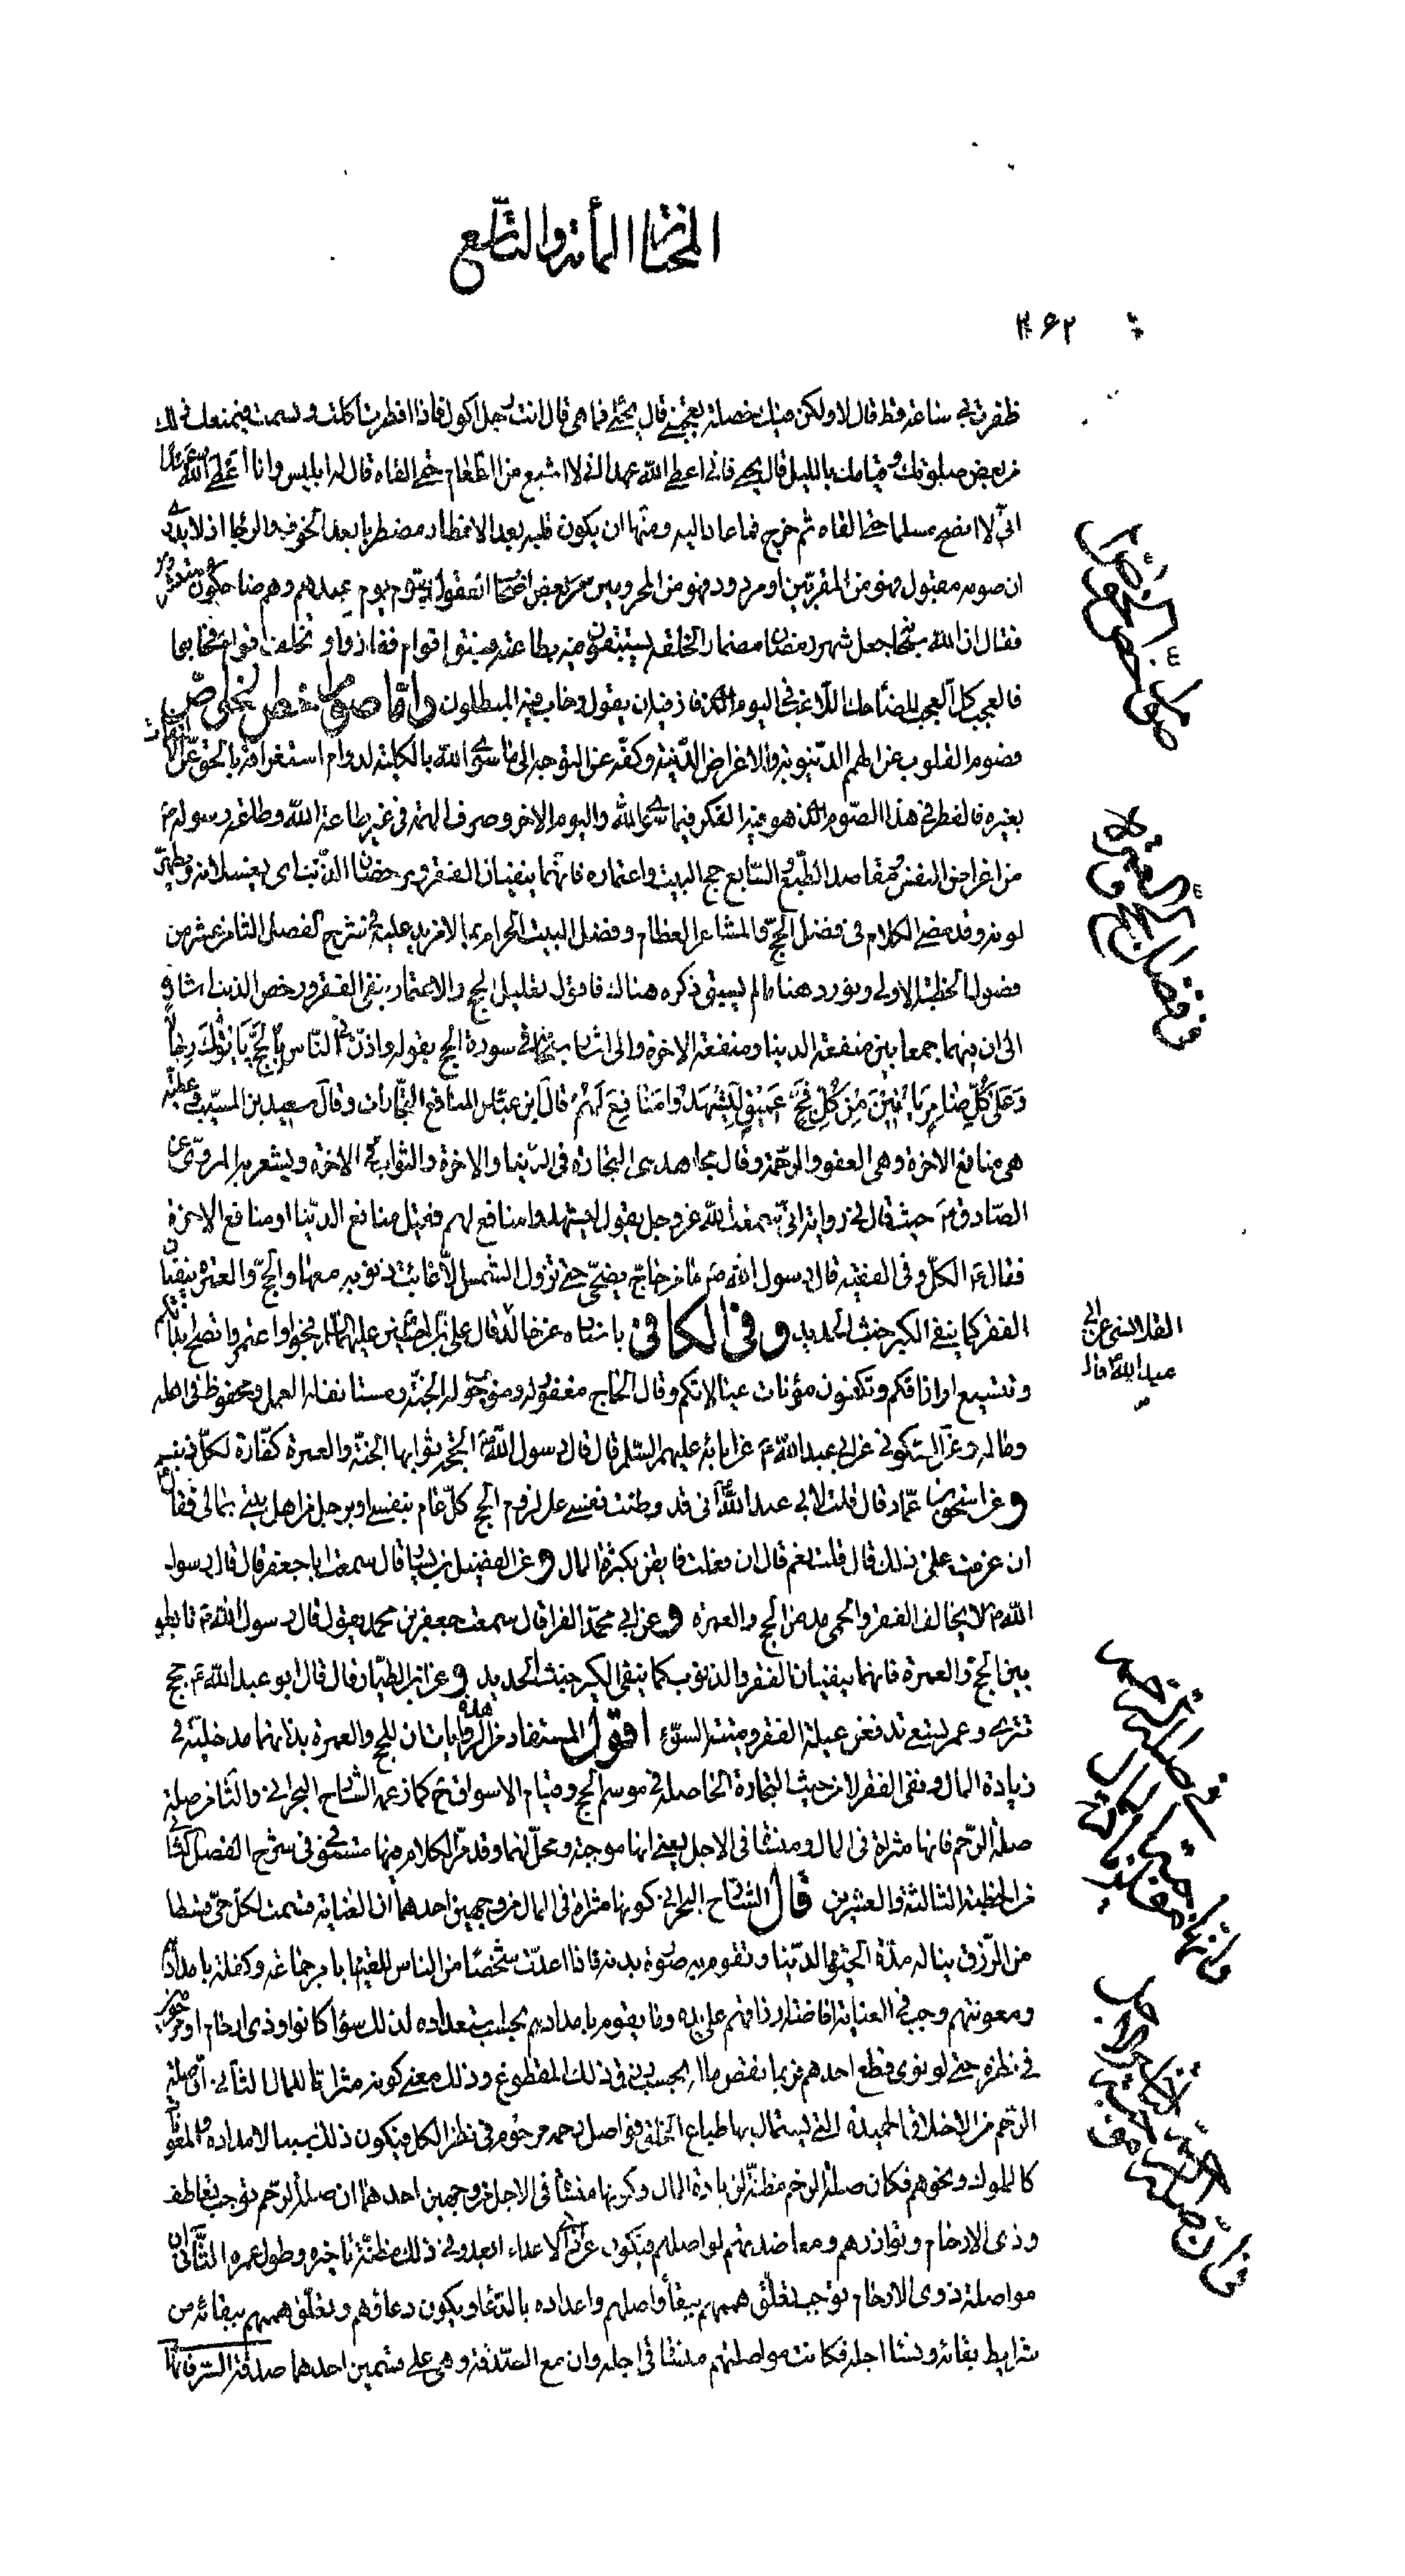 المختار المأة والتاسع
٢٦٢
ظفرت بى ساعة قط قال لا ولكن فيك خصلة تعجبنى قال يحيى فما هى قال انت رجل اكول فاذا افطرت اكلت وبشمت فيمنعك ذلك
من بعض صلوتك وقيامك بالليل قال يحيى فانى اعطى الله عهدا انى لا اشبع من الطعام حتى القاه قال له ابليس وانا اعطى الله عهدا
انى لا انصح مسلما حتى القاه ثم خرج فما عاد اليه ومنها ان يكون قلبه بعد الافطار مضطربا بعد الخوف والرجا اذ لا يدرى
ان صومه مقبول فهو من المقربين او مردود فهو من المحرومين مر بعض اصحاب العقول بقوم يوم عيدهم وهم ضاحكون
فقال ان الله سبحانه جعل شهر رمضان مضمار الخلقه يستبقون فيه بطاعته فسبقوا اقوام ففازوا وتخلف اقوام فخابوا
فالعجب كل العجب للضاحك اللاعب فى اليوم الذى فاز فيه السابقون وخاب فيه المبطلون واما صوم اخص الخواص
فصوم القلوب عن الهمم الدنيوية والاغراض الدنية وكفه عن التوجه الى ما سوى الله بالكلية لدوام استغراقه بالحق عن الالتفات
بغيره فالفطر فى هذا الصوم الذى هو فيه الفكر فيما سوى الله واليوم الاخر وصرف الهمة فى غير طاعة الله وطاعة رسوله ص
من اغراض النفس ومقاصد الطبع والسابع حج البيت واعتماره فانهما ينفيان الفقر ويرحضان الذنب اى يغسلانه ويطهران
لوثه وقد مضى الكلام فى فضل الحج والمشاعر العظام وفضل البيت الحرام بما لا مزيد عليه فى شرح الفصل الثامن عشر من
فصول الخطبة الاولى ونورد هنا ما لم يسبق ذكره هناك فاقول تعليل الحج والاعتمار بنفى الفقر ورحض الذنب اشارة
الى ان فيهما جمعا بين منفعة الدنيا ومنفعة الاخرة والى اشار سبحانه فى سورة الحج بقوله واذن فى الناس بالحج يأتوك رجالا
وعلى كل ضامر يأتين من كل فج عميق ليشهدوا منافع لهم قال ابن عباس المنافع التجارات وقال سعيد بن المسيب وعطية
هى منافع الاخرة وهى العفو والرحمة وقال مجاهد هى التجارة فى الدنيا والاخرة والثواب فى الاخرة ويشعر به المروى عن
الصادق ع حيث قال فى رواية انى سمعت الله عز وجل يقول ليشهدوا منافع لهم فقيل منافع الدنيا او منافع الاخرة
فقال ع الكل وفى الفقيه قال رسول الله ص ما من حاج يضحى حتى تزول الشمس الا غابت ذنوبه معها والحج والعمرة ينفيان
الفقر كما ينفى الكير خبث الحديد وفى الكافى باسناده عن خالد القلانسى عن ابى عبد الله ع قال قال على بن الحسين عليهما السلام حجوا واعتمروا تصح ابدانكم
وتتسع ارزاقكم وتكفون مؤنات عيالاتكم وقال الحاج مغفور له وموجوب له الجنة ومستانف له العمل ومحفوظ فى اهله
وماله وعن السكونى عن ابى عبد الله ع عن ابائه عليهم السلم قال قال رسول الله ص الحجة ثوابها الجنة والعمرة كفارة لكل ذنب
وعن اسحق بن عمار قال قلت لابى عبد الله ع انى قد وطنت نفسى على لزوم الحج كل عام بنفسى او برجل من اهل بيتى بمالى فقال
ان عزمت على ذلك قال قلت نعم قال ان فعلت فايقن بكثرة المال وعن الفضيل بن يسار قال سمعت ابا جعفر قال قال رسول
الله ص لا يخالف الفقر والحمى مدمن الحج والعمرة وعن ابى محمد الفرا قال سمعت جعفر بن محمد يقول قال رسول الله ص تابعوا
بين الحج والعمرة فانهما ينفيان الفقر والذنوب كما ينفى الكير خبث الحديد وعن ابن الطيار قال قال ابو عبد الله ع حجج
تترى وعمر تسعى تدفعن عيلة الفقر وميتة السوء اقول المستفاد من هذه الروايات ان للحج والعمرة بذاتهما مدخلية فى
زيادة المال ونفى الفقر لا من حيث التجارة الحاصلة فى موسم الحج وقيام الاسواق ثم كما زعمه الشارح البحرانى والثامن صلة
صلة الرحم فانها مثراة فى المال ومنساة فى الاجل يعنى انها موجبة ومحل لهما وقد مر الكلام فيها مستوفى فى شرح الفصل الثانى
من الخطبة الثالثة والعشرين قال الشارح البحرانى كونها مثراة فى المال من وجهين احدهما ان العناية قسمت لكل حى قسطا
من الرزق يناله مدة الحيوة الدنيا وتقوم به صورة بدنه فاذا اعدت شخصا من الناس للقيام بامر جماعة وكفلته بامدادهم
ومعونتهم وجب فى العناية افاضة ارزاقهم على يده وما يقوم بامدادهم بحسب استعداده لذلك سواء كانوا ذوى ارحام او مرحومين
فى نظره حتى لو نوى قطع احدهم فربما نقص ماله بحسب رزق ذلك المقطوع وذلك معنى كونه مثراة للمال الثانى ان صلة
الرحم من الاخلاق الحميدة التى يستمال بها طباع الخلق فواصل رحمه مرحوم فى نظر الكل فيكون ذلك سببا لامداده ومعونته
كالملوك ونحوهم فكان صلة الرحم مظنة لزيادة المال وكونها منساة فى الاجل من وجهين احدهما ان صلة الرحم توجب تعاطف
وذى الارحام وتوازرهم ومعاضدتهم لواصلهم فيكون عن اذى الاعداء ابعد وفى ذلك مظنة تأخره وطول عمره الثانى ان
مواصلة ذوى الارحام توجب تعلق هممهم ببقاء واصلهم وامداده بالدعا ويكون دعاؤهم وتعلق هممهم ببقائه من
شرايط بقائه وانساء اجله فكانت مواصلتهم منساة فى اجله وان مع الصدقة وهى على قسمين احدها صدقة السر فانها
صوم اخص الخواص
فى فضل الحج والعمرة
القلانسى عن ابى
عبد الله ع قال
فى صلة الرحم